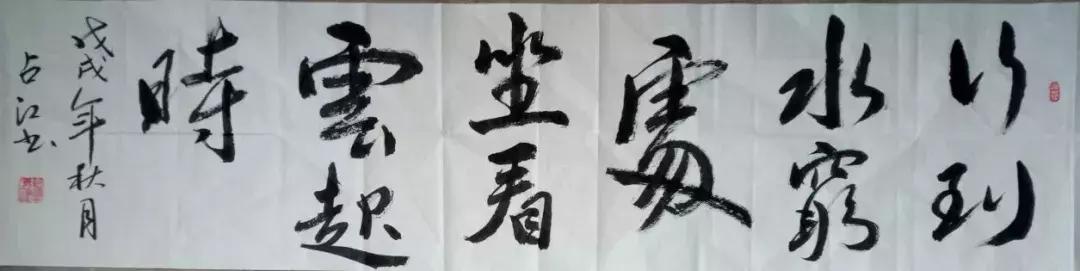 行到
水窮
處
坐看
雲起
時
戊戌年秋月
占江书